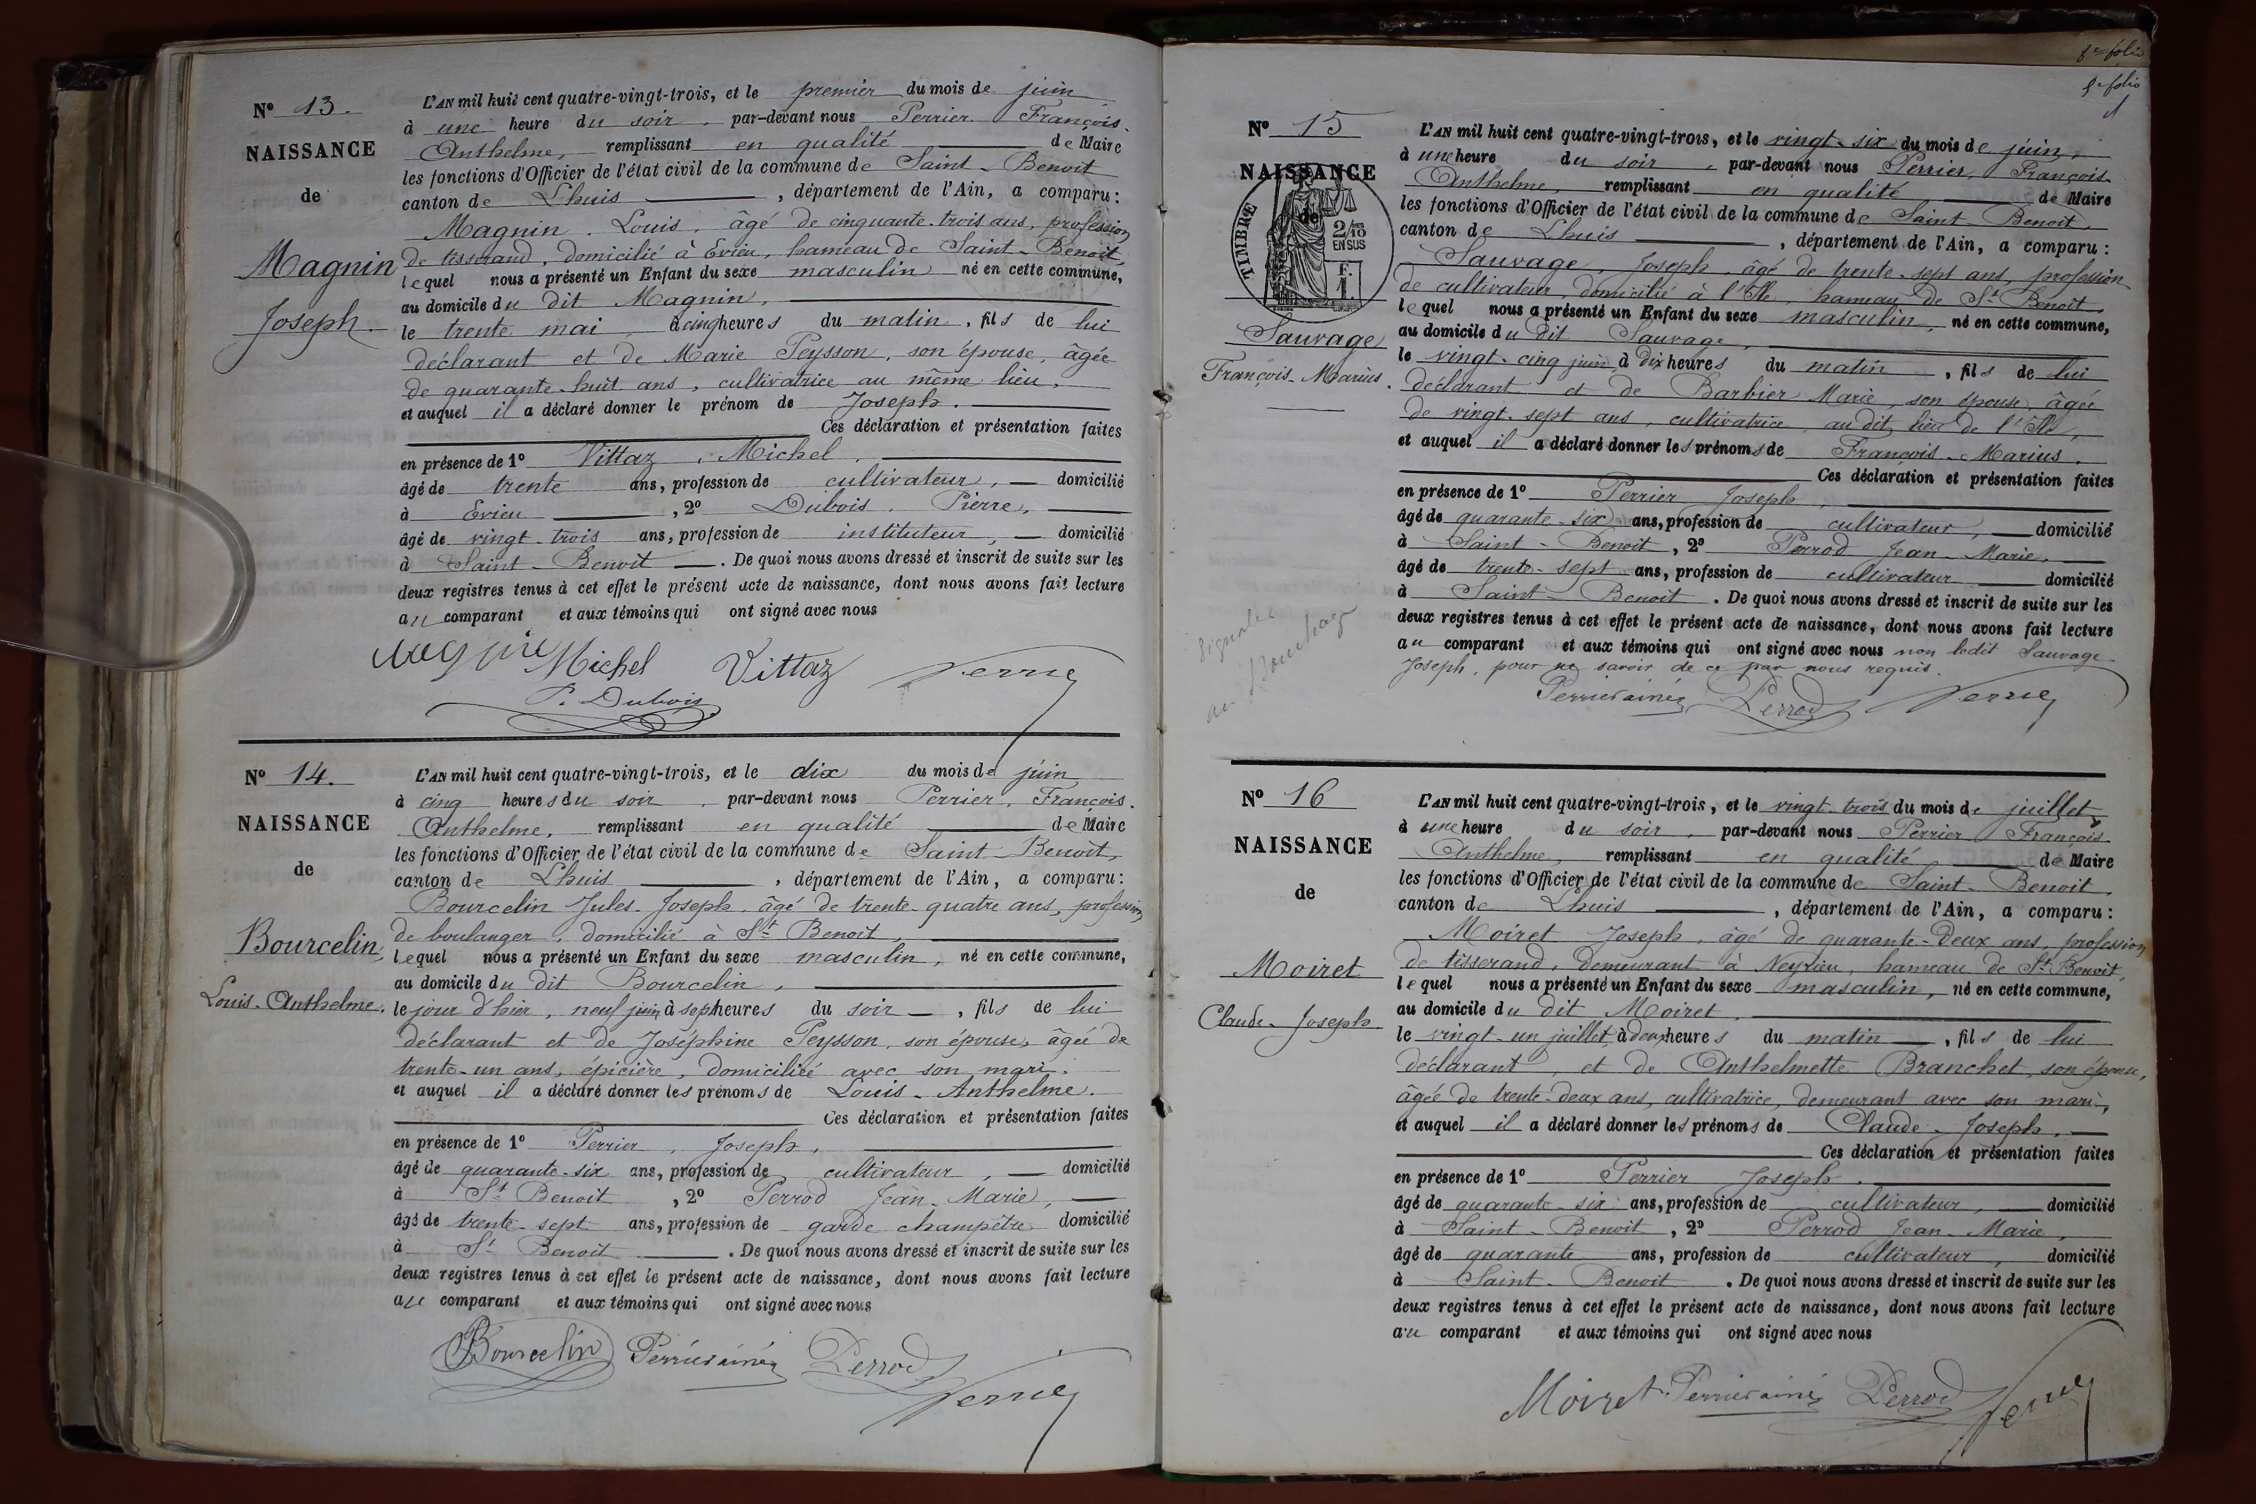 Nº 13.
NAISSANCE
de
Magnin
Joseph.
L'AN mil huit cent quatre-vingt-trois, et le premier du mois de juin
à une heure du soir, par-devant nous Perrier François.
Anthelme, remplissant en qualité de Maire
les fonctions d'Officier de l'état civil de la commune de Saint-Benoit
canton de Lhuis, département de l'Ain, a comparu:
Magnin, Louis, âgé de cinquante-trois ans, profession
de tisserand, domicilié à Evieu, hameau de Saint-Benoit,
lequel nous a présenté un Enfant du sexe masculin né en cette commune,
au domicile du dit Magnin,
le trente mai à cinq heures du matin, fils de lui
déclarant et de Marie Peysson, son épouse, âgée
de quarante-huit ans, cultivatrice au même lieu,
et auquel il a déclaré donner le prénom de Joseph.
Ces déclaration et présentation faites
en présence de 1º Vittaz, Michel,
âgé de trente ans, profession de cultivateur, domicilié
à Evieu, 2º Dubois, Pierre,
âgé de vingt-trois ans, profession de instituteur, domicilié
à Saint-Benoit. De quoi nous avons dressé et inscrit de suite sur les
deux registres tenus à cet effet le présent acte de naissance, dont nous avons fait lecture
au comparant et aux témoins qui ont signé avec nous
Michel Vittaz
P. Dubois
Nº 14.
NAISSANCE
de
Bourcelin,
Louis-Anthelme.
L'AN mil huit cent quatre-vingt-trois, et le dix du mois de juin
à cinq heures du soir, par-devant nous Perrier, François.
Anthelme, remplissant en qualité de Maire
les fonctions d'Officier de l'état civil de la commune de Saint-Benoit,
canton de Lhuis, département de l'Ain, a comparu:
Bourcelin Jules-Joseph, âgé de trente-quatre ans, profession
de boulanger, domicilié à St Benoit,
lequel nous a présenté un Enfant du sexe masculin, né en cette commune,
au domicile du dit Bourcelin,
le jour d'hier, neuf juin à sept heures du soir, fils de lui
déclarant et de Joséphine Peysson, son épouse, âgée de
trente-un ans, épicière, domiciliée avec son mari.
et auquel il a déclaré donner les prénoms de Louis-Anthelme.
Ces déclaration et présentation faites
en présence de 1º Perrier, Joseph,
âgé de quarante-six ans, profession de cultivateur, domicilié
à St Benoit, 2º Perrod Jean-Marie,
âgé de trente-sept ans, profession de garde champêtre domicilié
à St Benoit. De quoi nous avons dressé et inscrit de suite sur les
deux registres tenus à cet effet le présent acte de naissance, dont nous avons fait lecture
au comparant et aux témoins qui ont signé avec nous
Bourcelin Perrier ainé Perrod
8e folio
8e folio
Nº 15
NAISSANCE
de
TIMBRE
2/10
EN SUS
F.
1.
Sauvage
François-Marius.
L'AN mil huit cent quatre-vingt-trois, et le vingt-six du mois de juin,
à une heure du soir, par-devant nous Perrier, François
Anthelme, remplissant en qualité de Maire
les fonctions d'Officier de l'état civil de la commune de Saint Benoit,
canton de Lhuis, département de l'Ain, a comparu:
Sauvage, Joseph, âgé de trente-sept ans, profession
de cultivateur, domicilié à l'Ille, hameau de St Benoit,
lequel nous a présenté un Enfant du sexe masculin, né en cette commune,
au domicile du dit Sauvage,
le vingt-cinq juin à dix heures du matin, fils de lui
déclarant et de Barbier Marie, son épouse, âgée
de vingt-sept ans, cultivatrice, au dit lieu de l'Ille,
et auquel il a déclaré donner les prénoms de François-Marius,
Ces déclaration et présentation faites
en présence de 1º Perrier Joseph,
âgé de quarante-six ans, profession de cultivateur, domicilié
à Saint-Benoit, 2º Perrod Jean-Marie,
âgé de trente-sept ans, profession de cultivateur domicilié
à Saint-Benoit. De quoi nous avons dressé et inscrit de suite sur les
deux registres tenus à cet effet le présent acte de naissance, dont nous avons fait lecture
au comparant et aux témoins qui ont signé avec nous non ledit Sauvage
Joseph, pour ne savoir de ce par nous requis.
Perrier ainé Perrod
Signalé
au Bouchage
Nº 16
NAISSANCE
de
Moiret
Claude-Joseph
L'AN mil huit cent quatre-vingt-trois, et le vingt-trois du mois de juillet,
à une heure du soir, par-devant nous Perrier François
Anthelme, remplissant en qualité de Maire
les fonctions d'Officier de l'état civil de la commune de Saint-Benoit,
canton de Lhuis, département de l'Ain, a comparu:
Moiret Joseph, âgé de quarante-deux ans, profession
de tisserand, demeurant à Neyrieu, hameau de St Benoit,
lequel nous a présenté un Enfant du sexe masculin, né en cette commune,
au domicile du dit Moiret,
le vingt-un juillet à deux heures du matin, fils de lui
déclarant, et de Anthelmette Branchet, son épouse,
âgée de trente-deux ans, cultivatrice, demeurant avec son mari,
et auquel il a déclaré donner les prénoms de Claude-Joseph,
Ces déclaration et présentation faites
en présence de 1º Perrier Joseph.
âgé de quarante-six ans, profession de cultivateur, domicilié
à Saint-Benoit, 2º Perrod Jean-Marie,
âgé de quarante ans, profession de cultivateur, domicilié
à Saint-Benoit. De quoi nous avons dressé et inscrit de suite sur les
deux registres tenus à cet effet le présent acte de naissance, dont nous avons fait lecture
au comparant et aux témoins qui ont signé avec nous
Moiret Perrier ainé Perrod